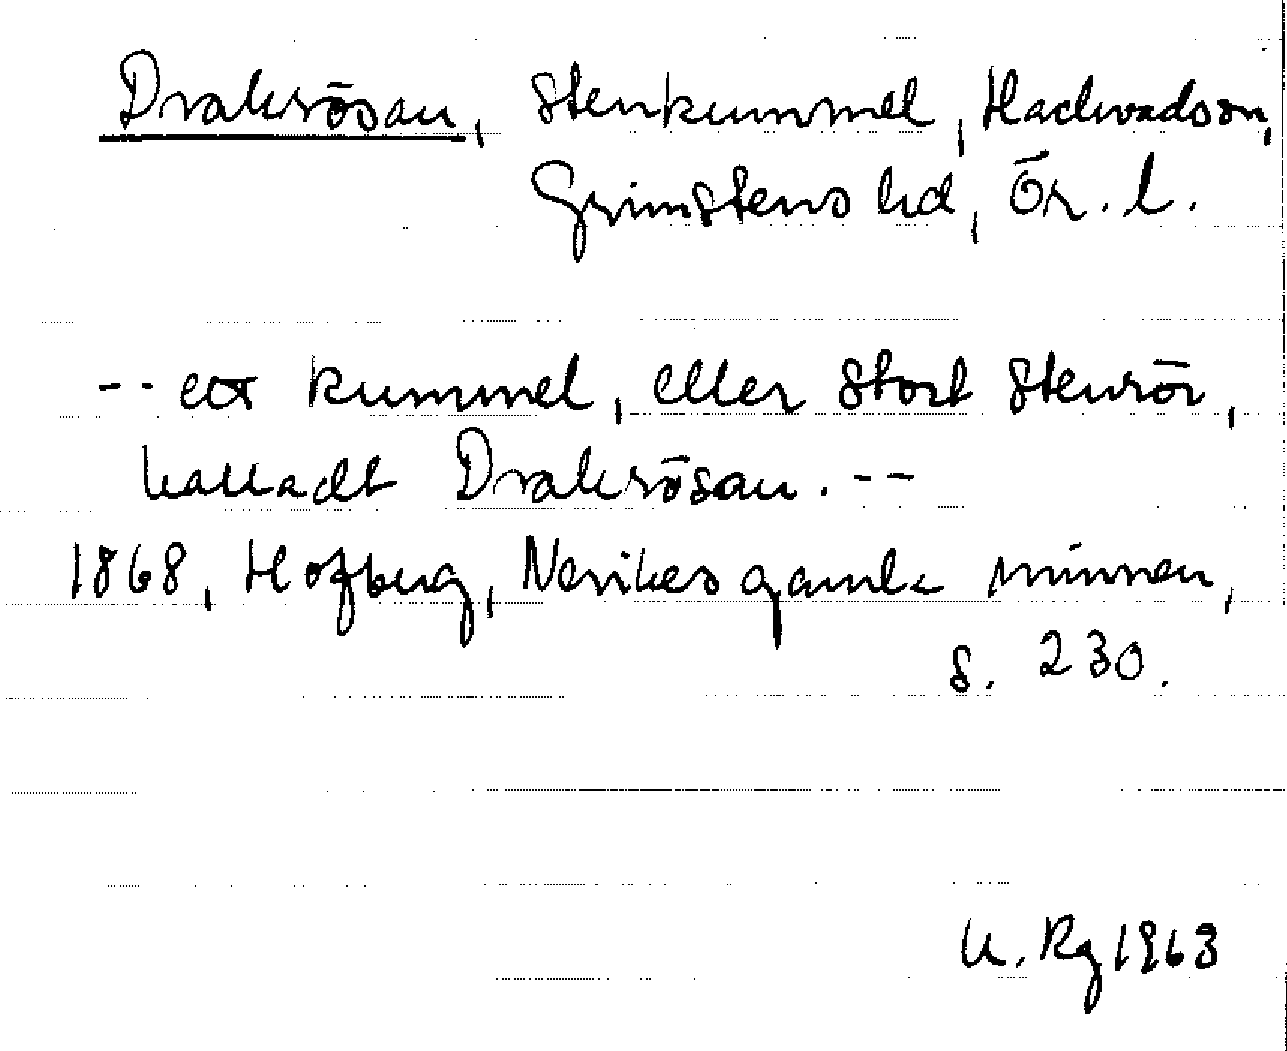 Drakrösan, stenkummel, Hackvadson,
Grimstens hd, Ör. l.
-- ett kummel, eller stort stenrör,
kalladt Drakrösan. --
1868, Hofberg, Nerikes gamla minnen,
s. 230.
K. Rg 1963